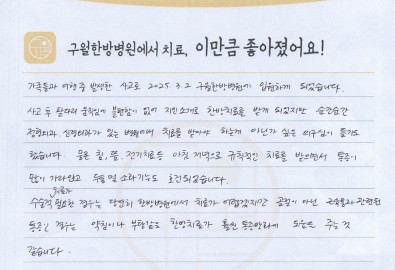 구월한방병원에서 치료, 이만큼 좋아졌어요!
가족들과 여행 중 발생한 사고로 2025. 3. 2 구월한방병원에 입원하게 되었습니다.
사고 후 팔다리 움직임에 불편함이 없어 지인소개로 한방치료를 받게 되었지만 순간순간
정형외과, 신경외과가 있는 병원에서 치료를 받아야 하는게 아닌가 싶은 의구심이 들기도
했습니다. 물론 침, 뜸, 전기치료등 아침 저녁으로 규칙적인 치료를 받으면서 통증이
많이 가라앉고 두통 및 소화기능도 호전되었습니다.
수술적 치료가 필요한 경우는 당연히 한방병원에서 치료가 어렵겠지만 골절이 아닌 근육통과 관련된
통증인 경우는 약침이나 부항같은 한방치료가 훨씬 통증완화에 도움을 주는 것
같습니다.